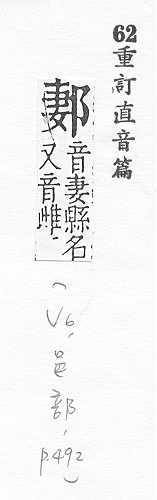 62重訂直音篇
郪音妻縣名
又音雌
(V6,邑部,
p.492)